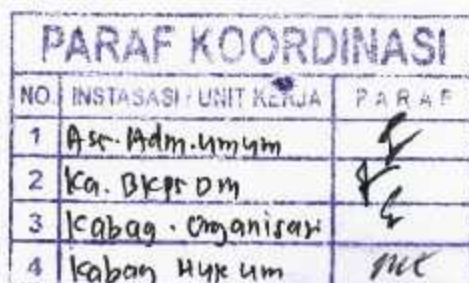 PARAF KOORDINASI
NO. INSTASASI / UNIT KERJA PARAF
1 Ass. Adm. Umum
2 Ka. BKPSDM
3 Kabag. Organisasi
4 Kabag Hukum